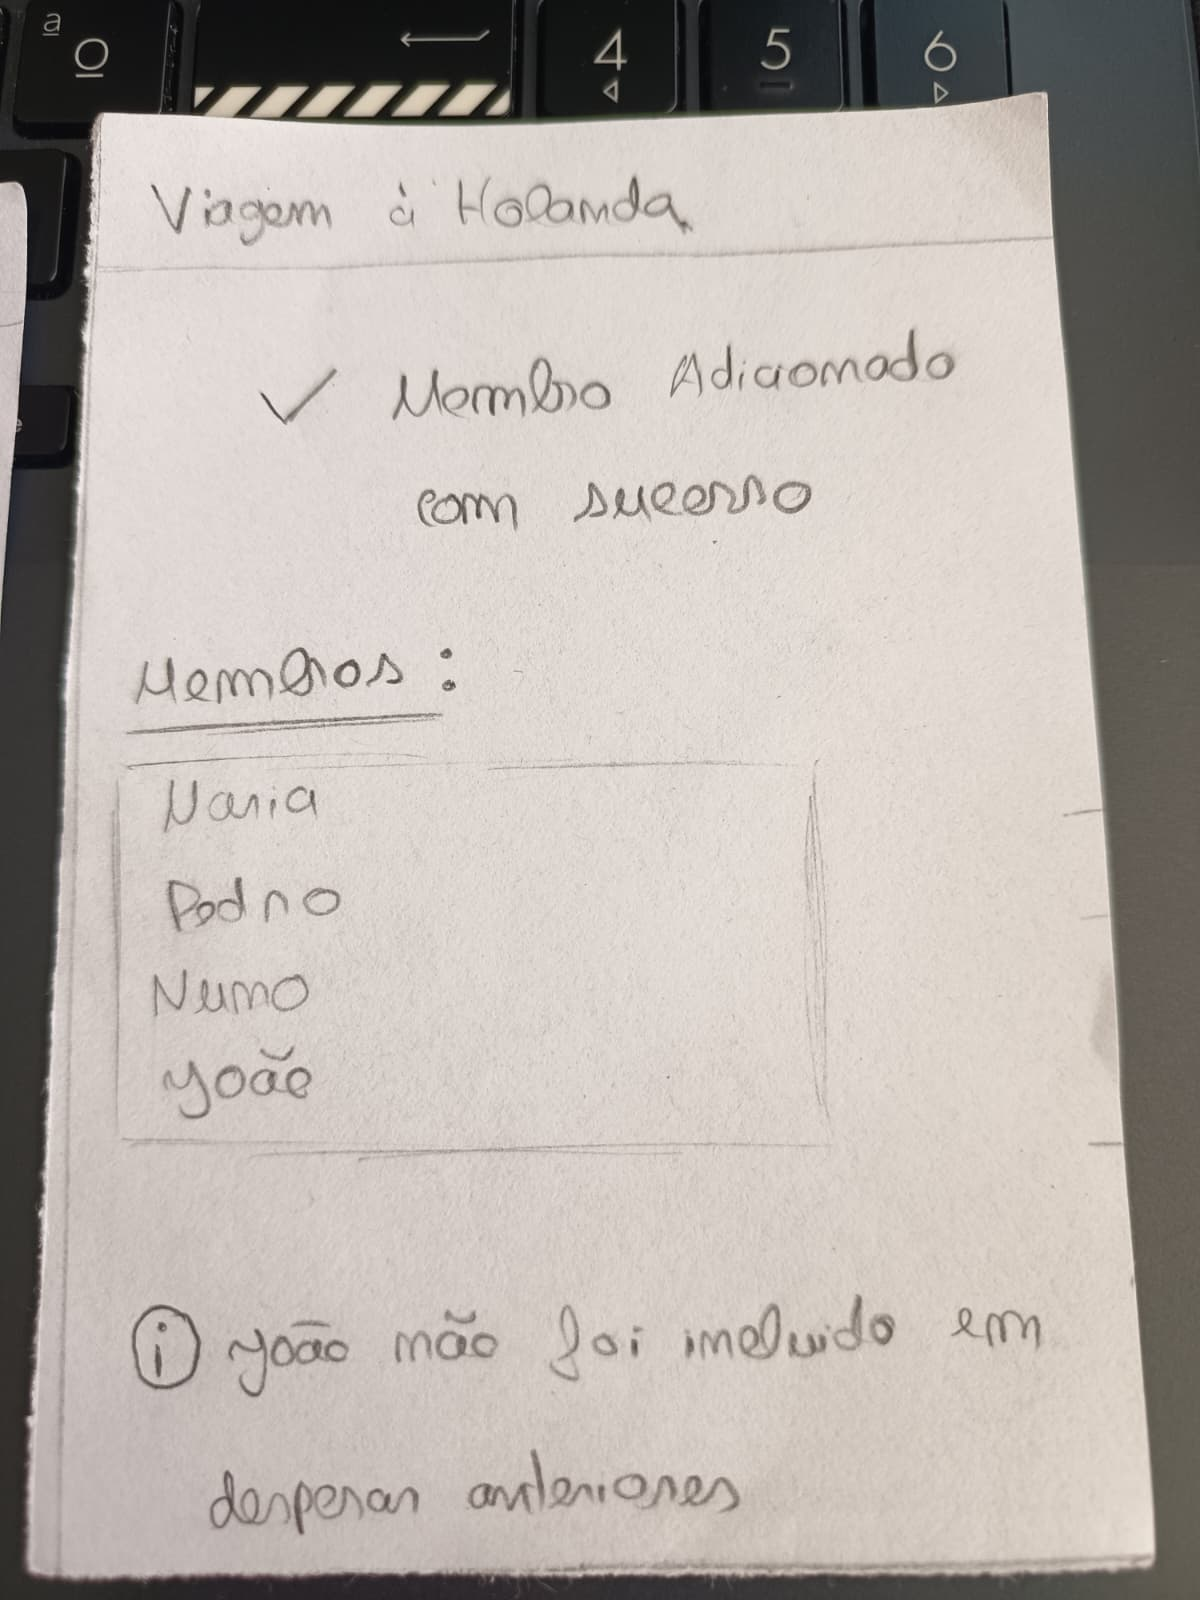 ª
O
4
5
6
Viagem à Holanda
✓ Membro Adicionado
com sucesso
Membros:
Maria
Pedro
Nuno
João
i João não foi incluido em
despesas anteriores